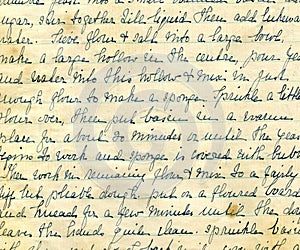 sugar, stir together till liquid. Then add lukewarm
water. Sieve flour & salt into a large bowl,
make a large hollow in the centre, pour yeast
and water into this hollow & mix in just
enough flour to make a sponge. Sprinkle a little
flour over, then put basin in a warm
place for about 20 minutes or until the yeast
begins to work and sponge is covered with bubbles
Then work in remaining flour & mix to a fairly
stiff but pliable dough. put on a floured board
and knead for a few minutes until the dough
leaves the hands quite clean. sprinkle basin